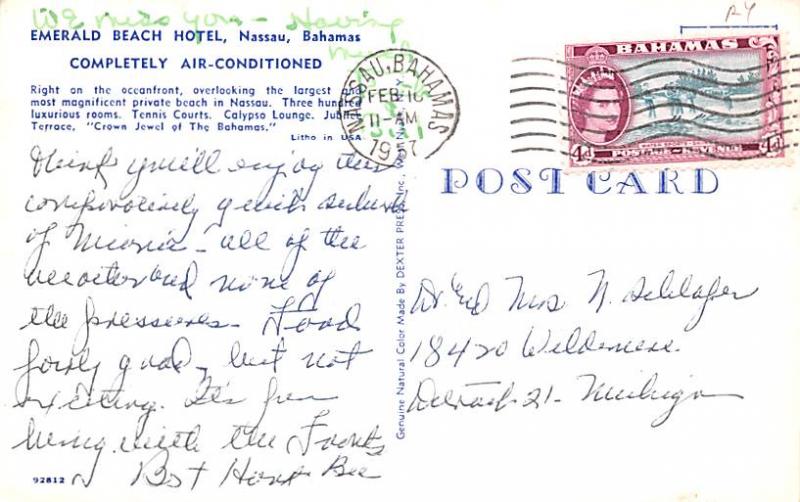 We miss you - Having
EMERALD BEACH HOTEL, Nassau, Bahamas
COMPLETELY AIR-CONDITIONED
Right on the oceanfront, overlooking the largest and
most magnificent private beach in Nassau. Three hundred
luxurious rooms. Tennis Courts. Calypso Lounge. Jubilee
Terrace, "Crown Jewel of The Bahamas."
Litho in USA
Think you'll enjoy this
comparatively quiet suburb
of Miami - all of the
weather and none of
the pressures. Food
fairly good - but not
exciting. It's fun
being with the
Best
92812
Genuine Natural Color Made By DEXTER PRESS, Inc.
NASSAU, BAHAMAS
FEB 16
11-AM
1957
BAHAMAS
4d POSTAGE REVENUE 4d
POST CARD
Dr. and Mrs N. Schlafer
18420 Wildemere
Detroit 21 - Michigan